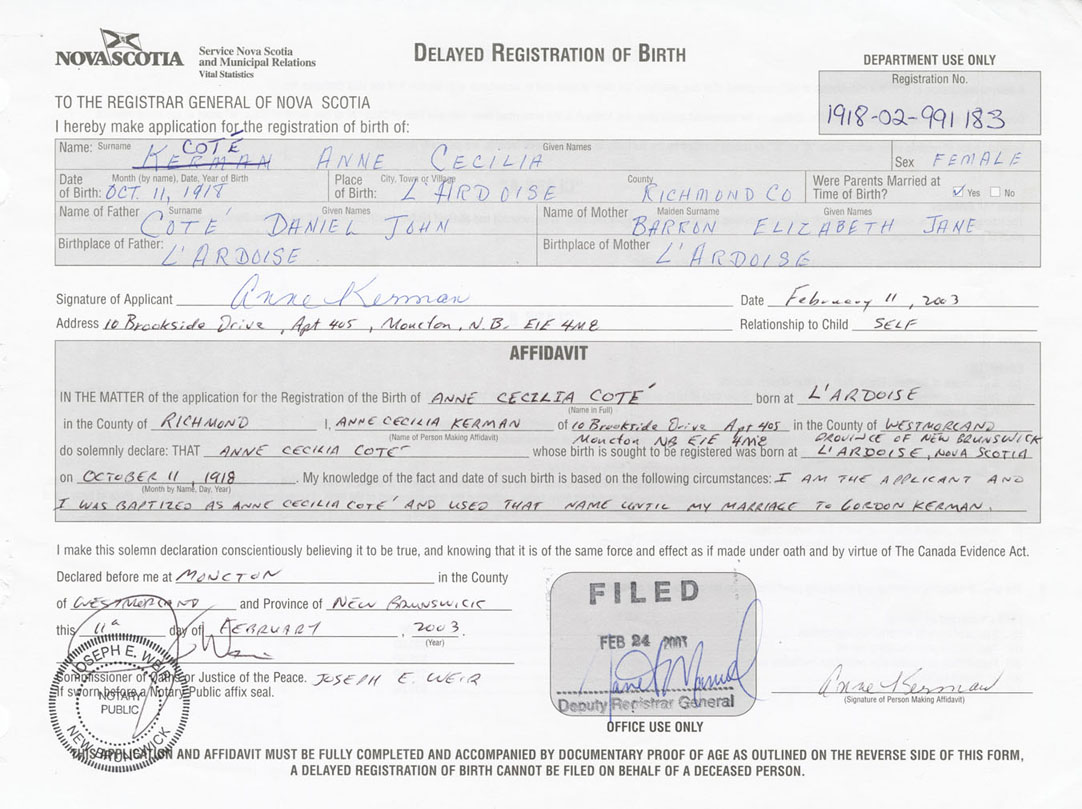 NOVA SCOTIA
Service Nova Scotia
and Municipal Relations
Vital Statistics
DELAYED REGISTRATION OF BIRTH
DEPARTMENT USE ONLY
Registration No.
1918-02-991183
TO THE REGISTRAR GENERAL OF NOVA SCOTIA
I hereby make application for the registration of birth of:
COTÉ
Name: Surname KERMAN ANNE CECILIA Given Names
Sex FEMALE
Date of Birth: Month (by name), Date, Year of Birth OCT. 11, 1918
Place of Birth: City, Town or Village L'ARDOISE County RICHMOND CO
Were Parents Married at Time of Birth? ✓ Yes No
Name of Father Surname Given Names COTÉ DANIEL JOHN
Name of Mother Maiden Surname Given Names BARRON ELIZABETH JANE
Birthplace of Father: L'ARDOISE
Birthplace of Mother L'ARDOISE
Signature of Applicant Anne Kerman Date February 11, 2003
Address 10 Brookside Drive, Apt 405, Moncton, N.B. E1E 4M8 Relationship to Child SELF
AFFIDAVIT
IN THE MATTER of the application for the Registration of the Birth of ANNE CECILIA COTÉ born at L'ARDOISE
(Name in Full)
in the County of RICHMOND I, ANNE CECILIA KERMAN of 10 Brookside Drive Apt 405 in the County of WESTMORLAND
(Name of Person Making Affidavit)
Moncton NB E1E 4M8 PROVINCE OF NEW BRUNSWICK
do solemnly declare: THAT ANNE CECILIA COTÉ whose birth is sought to be registered was born at L'ARDOISE, NOVA SCOTIA
on OCTOBER 11, 1918. My knowledge of the fact and date of such birth is based on the following circumstances: I AM THE APPLICANT AND
(Month by Name, Day, Year)
I WAS BAPTIZED AS ANNE CECILIA COTÉ AND USED THAT NAME UNTIL MY MARRIAGE TO GORDON KERMAN.
I make this solemn declaration conscientiously believing it to be true, and knowing that it is of the same force and effect as if made under oath and by virtue of The Canada Evidence Act.
Declared before me at MONCTON in the County
of WESTMORLAND and Province of NEW BRUNSWICK
this 11th day of FEBRUARY, 2003.
(Year)
Commissioner of Oaths or Justice of the Peace. JOSEPH E. WEIR
If sworn before a Notary Public affix seal.
JOSEPH E. WEIR
NOTARY
PUBLIC
NEW BRUNSWICK
FILED
FEB 24 2003
Deputy Registrar General
OFFICE USE ONLY
Anne Kerman
(Signature of Person Making Affidavit)
THIS APPLICATION AND AFFIDAVIT MUST BE FULLY COMPLETED AND ACCOMPANIED BY DOCUMENTARY PROOF OF AGE AS OUTLINED ON THE REVERSE SIDE OF THIS FORM,
A DELAYED REGISTRATION OF BIRTH CANNOT BE FILED ON BEHALF OF A DECEASED PERSON.